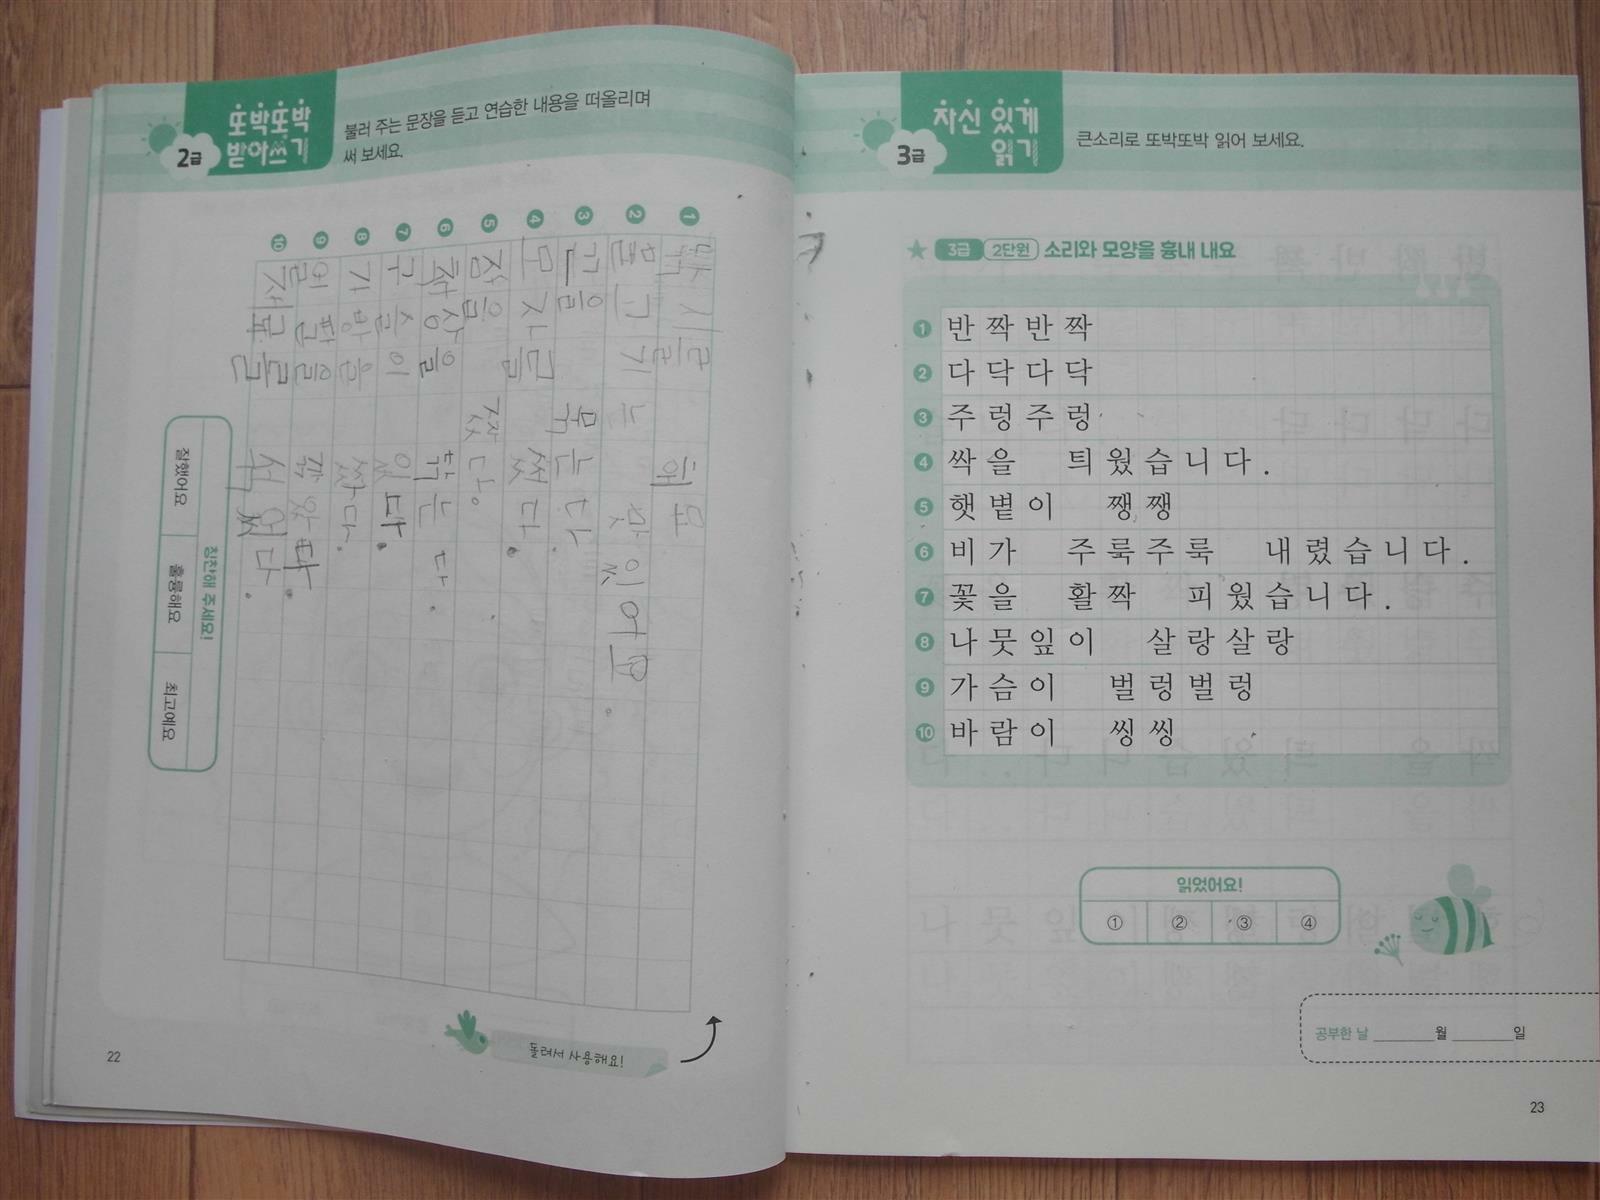 2급
또박또박
받아쓰기
불러 주는 문장을 듣고 연습한 내용을 떠올리며
써 보세요.
1
해요
2
맛있어요.
3
끈을 묶는다.
4
모자를 썼다.
5
잠을 잤다.
6
책상을 닦는다.
7
구슬이 있다.
8
가방을 쌌다.
9
연필을 깎았다.
10
섞었다.
칭찬해 주세요!
잘했어요
훌륭해요
최고예요
돌려서 사용해요!
22
3급
자신 있게
읽기
큰소리로 또박또박 읽어 보세요.
★ 3급 2단원 소리와 모양을 흉내 내요
1 반짝반짝
2 다닥다닥
3 주렁주렁
4 싹을 틔웠습니다.
5 햇볕이 쨍쨍
6 비가 주룩주룩 내렸습니다.
7 꽃을 활짝 피웠습니다.
8 나뭇잎이 살랑살랑
9 가슴이 벌렁벌렁
10 바람이 씽씽
읽었어요!
① ② ③ ④
공부한 날 ______월 ______일
23